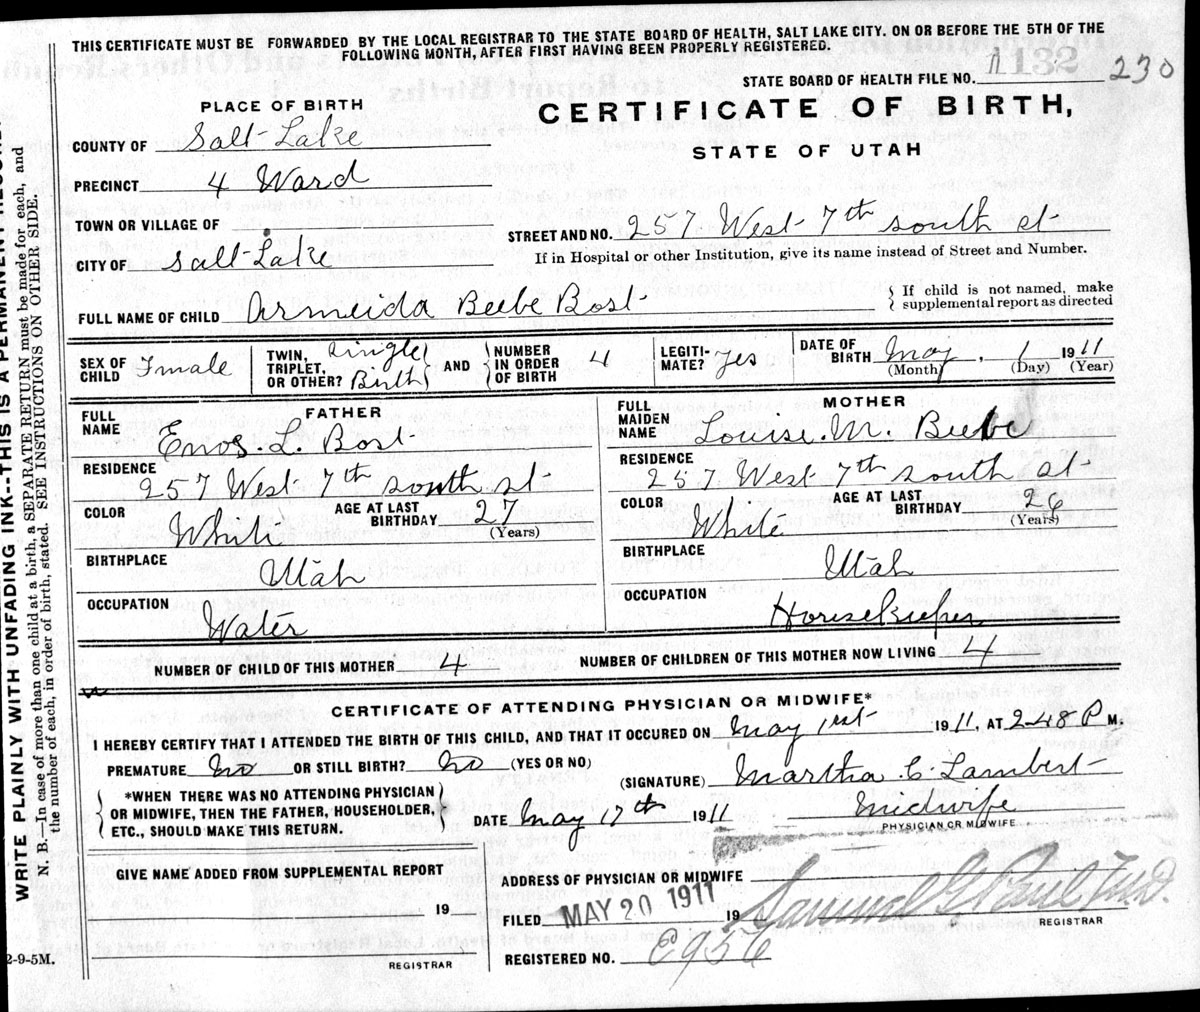 THIS CERTIFICATE MUST BE FORWARDED BY THE LOCAL REGISTRAR TO THE STATE BOARD OF HEALTH, SALT LAKE CITY. ON OR BEFORE THE 5TH OF THE
FOLLOWING MONTH, AFTER FIRST HAVING BEEN PROPERLY REGISTERED.
STATE BOARD OF HEALTH FILE NO. 1132 230
PLACE OF BIRTH
CERTIFICATE OF BIRTH,
STATE OF UTAH
COUNTY OF Salt Lake
PRECINCT 4 Ward
TOWN OR VILLAGE OF
STREET AND NO. 257 West 7th south st
CITY OF Salt Lake
If in Hospital or other Institution, give its name instead of Street and Number.
FULL NAME OF CHILD Armeida Beebe Bost
If child is not named, make
supplemental report as directed
SEX OF CHILD Fmale
TWIN, TRIPLET, OR OTHER? Single Birth
AND NUMBER IN ORDER OF BIRTH 4
LEGITI-MATE? yes
DATE OF BIRTH May 1 1911
(Month) (Day) (Year)
FATHER
FULL NAME Enos. L. Bost
RESIDENCE
257 West 7th south st
COLOR White
AGE AT LAST BIRTHDAY 27
(Years)
BIRTHPLACE
Utah
OCCUPATION
Water
MOTHER
FULL MAIDEN NAME Louise. M. Beebe
RESIDENCE
257 West 7th south st
COLOR White
AGE AT LAST BIRTHDAY 26
(Years)
BIRTHPLACE
Utah
OCCUPATION
Housekeeper
NUMBER OF CHILD OF THIS MOTHER 4 NUMBER OF CHILDREN OF THIS MOTHER NOW LIVING 4
CERTIFICATE OF ATTENDING PHYSICIAN OR MIDWIFE*
I HEREBY CERTIFY THAT I ATTENDED THE BIRTH OF THIS CHILD, AND THAT IT OCCURED ON May 1est 1911, AT 2-48 P M.
PREMATURE No OR STILL BIRTH? No (YES OR NO)
(SIGNATURE) Martha C. Lambert
*WHEN THERE WAS NO ATTENDING PHYSICIAN
OR MIDWIFE, THEN THE FATHER, HOUSEHOLDER,
ETC., SHOULD MAKE THIS RETURN.
DATE May 17th 1911
Midwife
PHYSICIAN OR MIDWIFE
GIVE NAME ADDED FROM SUPPLEMENTAL REPORT
19
REGISTRAR
ADDRESS OF PHYSICIAN OR MIDWIFE
FILED MAY 20 1911 19
Samuel G. Paul
REGISTRAR
REGISTERED NO. E956
WRITE PLAINLY WITH UNFADING INK--THIS IS A PERMANENT RECORD.
N. B.—In case of more than one child at a birth, a SEPARATE RETURN must be made for each, and
the number of each, in order of birth, stated. SEE INSTRUCTIONS ON OTHER SIDE.
2-9-5M.